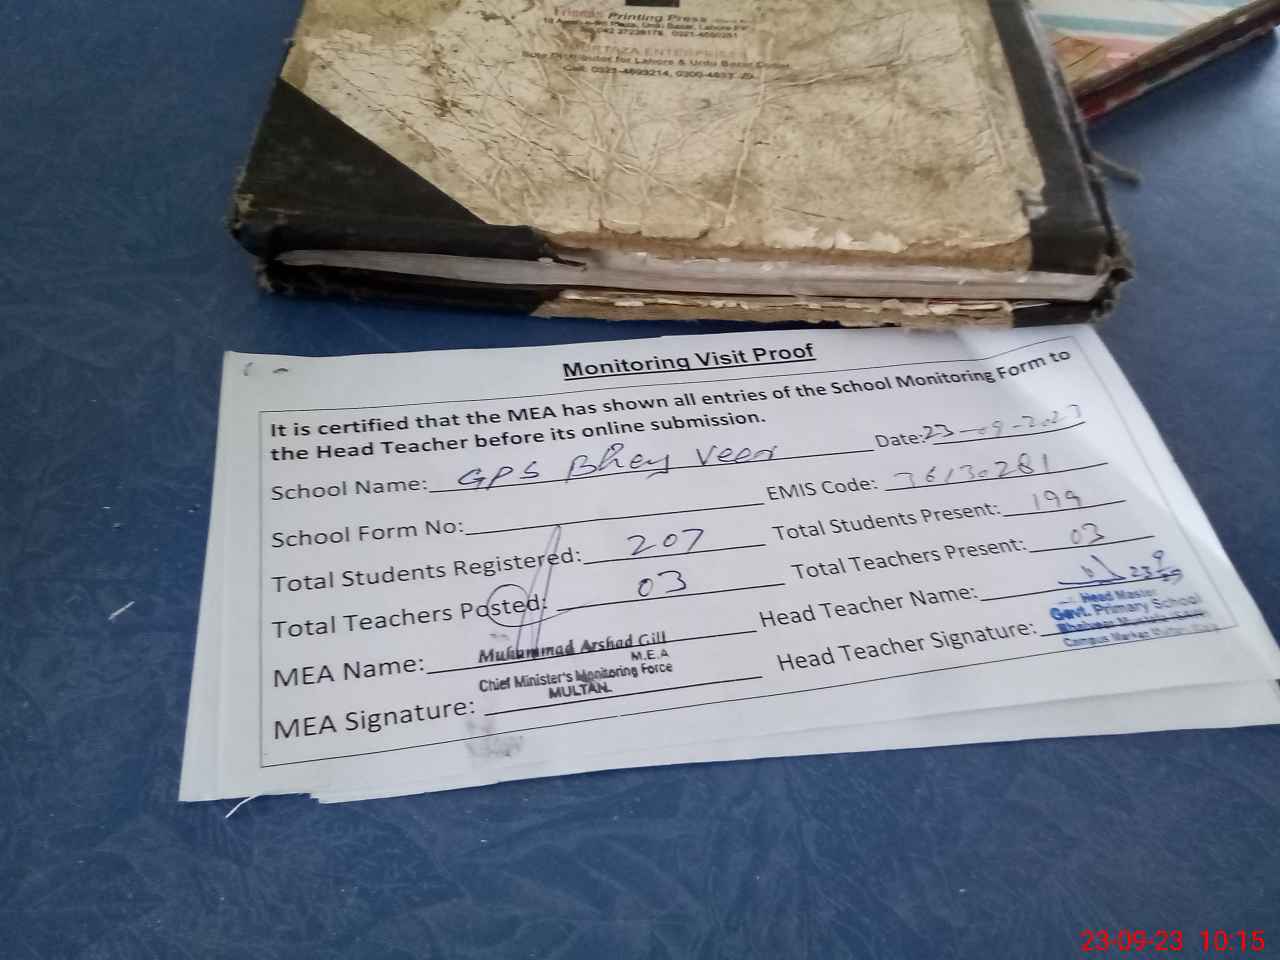 Friends Printing Press
Urdu Bazar, Lahore
042 37239178 0321-4660251
MURTAZA ENTERPRISES
Sole Distributor for Lahore & Urdu Bazar Depot
Cell: 0323-4693214, 0300-4893
Monitoring Visit Proof
It is certified that the MEA has shown all entries of the School Monitoring Form to
the Head Teacher before its online submission.
School Name: GPS Bhey Veer Date: 23-09-2023
School Form No: EMIS Code: 36130281
Total Students Registered: 207 Total Students Present: 199
Total Teachers Posted: 03 Total Teachers Present: 03
MEA Name: Muhammad Arshad Gill Head Teacher Name:
M.E.A
Chief Minister's Monitoring Force
MULTAN.
MEA Signature: Head Teacher Signature:
Head Master
Govt. Primary School
23-09-23 10:15